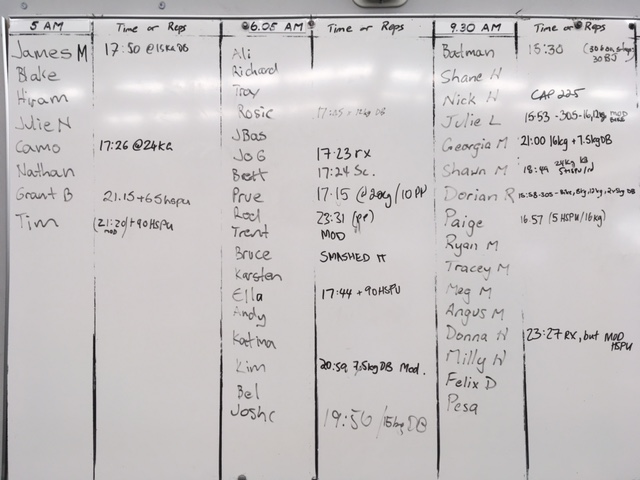 5 AM Time or Reps
James M 17:50 @15kg DB
Blake
Hiram
Julie N
Camo 17:26 @24kg
Nathan
Grant B 21:15+65hspu
Tim (21:20)+90HSPU
mod
6.05 AM Time or Reps
Ali
Richard
Troy
Rosie 17:35
JBas
Jo G 17:23 rx
Brett 17:24 Sc.
Prue 17:15 @20kg/10 PP
Rod 23:31 (pp)
Trent MOD
Bruce SMASHED IT
Karsten
Ella 17:44 +90HSPU
Andy
Katrina
Kim 20:59 7.5kg DB Mod.
Bel
Josh C 19:50 /15kg DB
9.30 AM Time or Reps
Batman 15:30
30 BJ
Shane W
Nick W CAP 225
Julie L 15:53 -30S-16, MOD
Georgia M 21:00 16kg +7.5kg DB
Shawn M 18:49 24kg KB
Dorian R
Paige 16.57 (5 HSPU/16kg)
Ryan M
Tracey M
Meg M
Angus M
Donna W 23:27 RX, but MOD
HSPU
Milly W
Felix D
Pesa